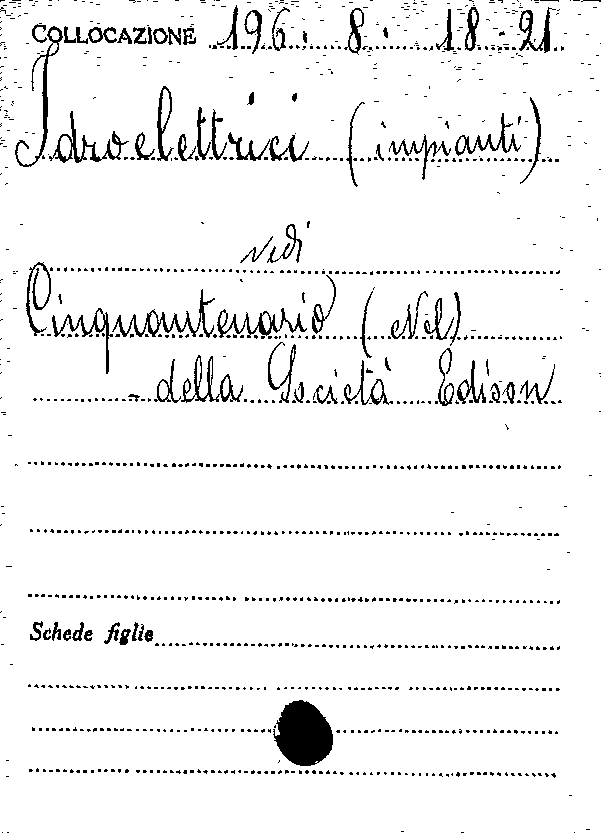 COLLOCAZIONE 196. 8. 18-21
Idroelettrici (impianti)
vedi
Cinquantenario (Nel)
- della Società Edison
Schede figlie